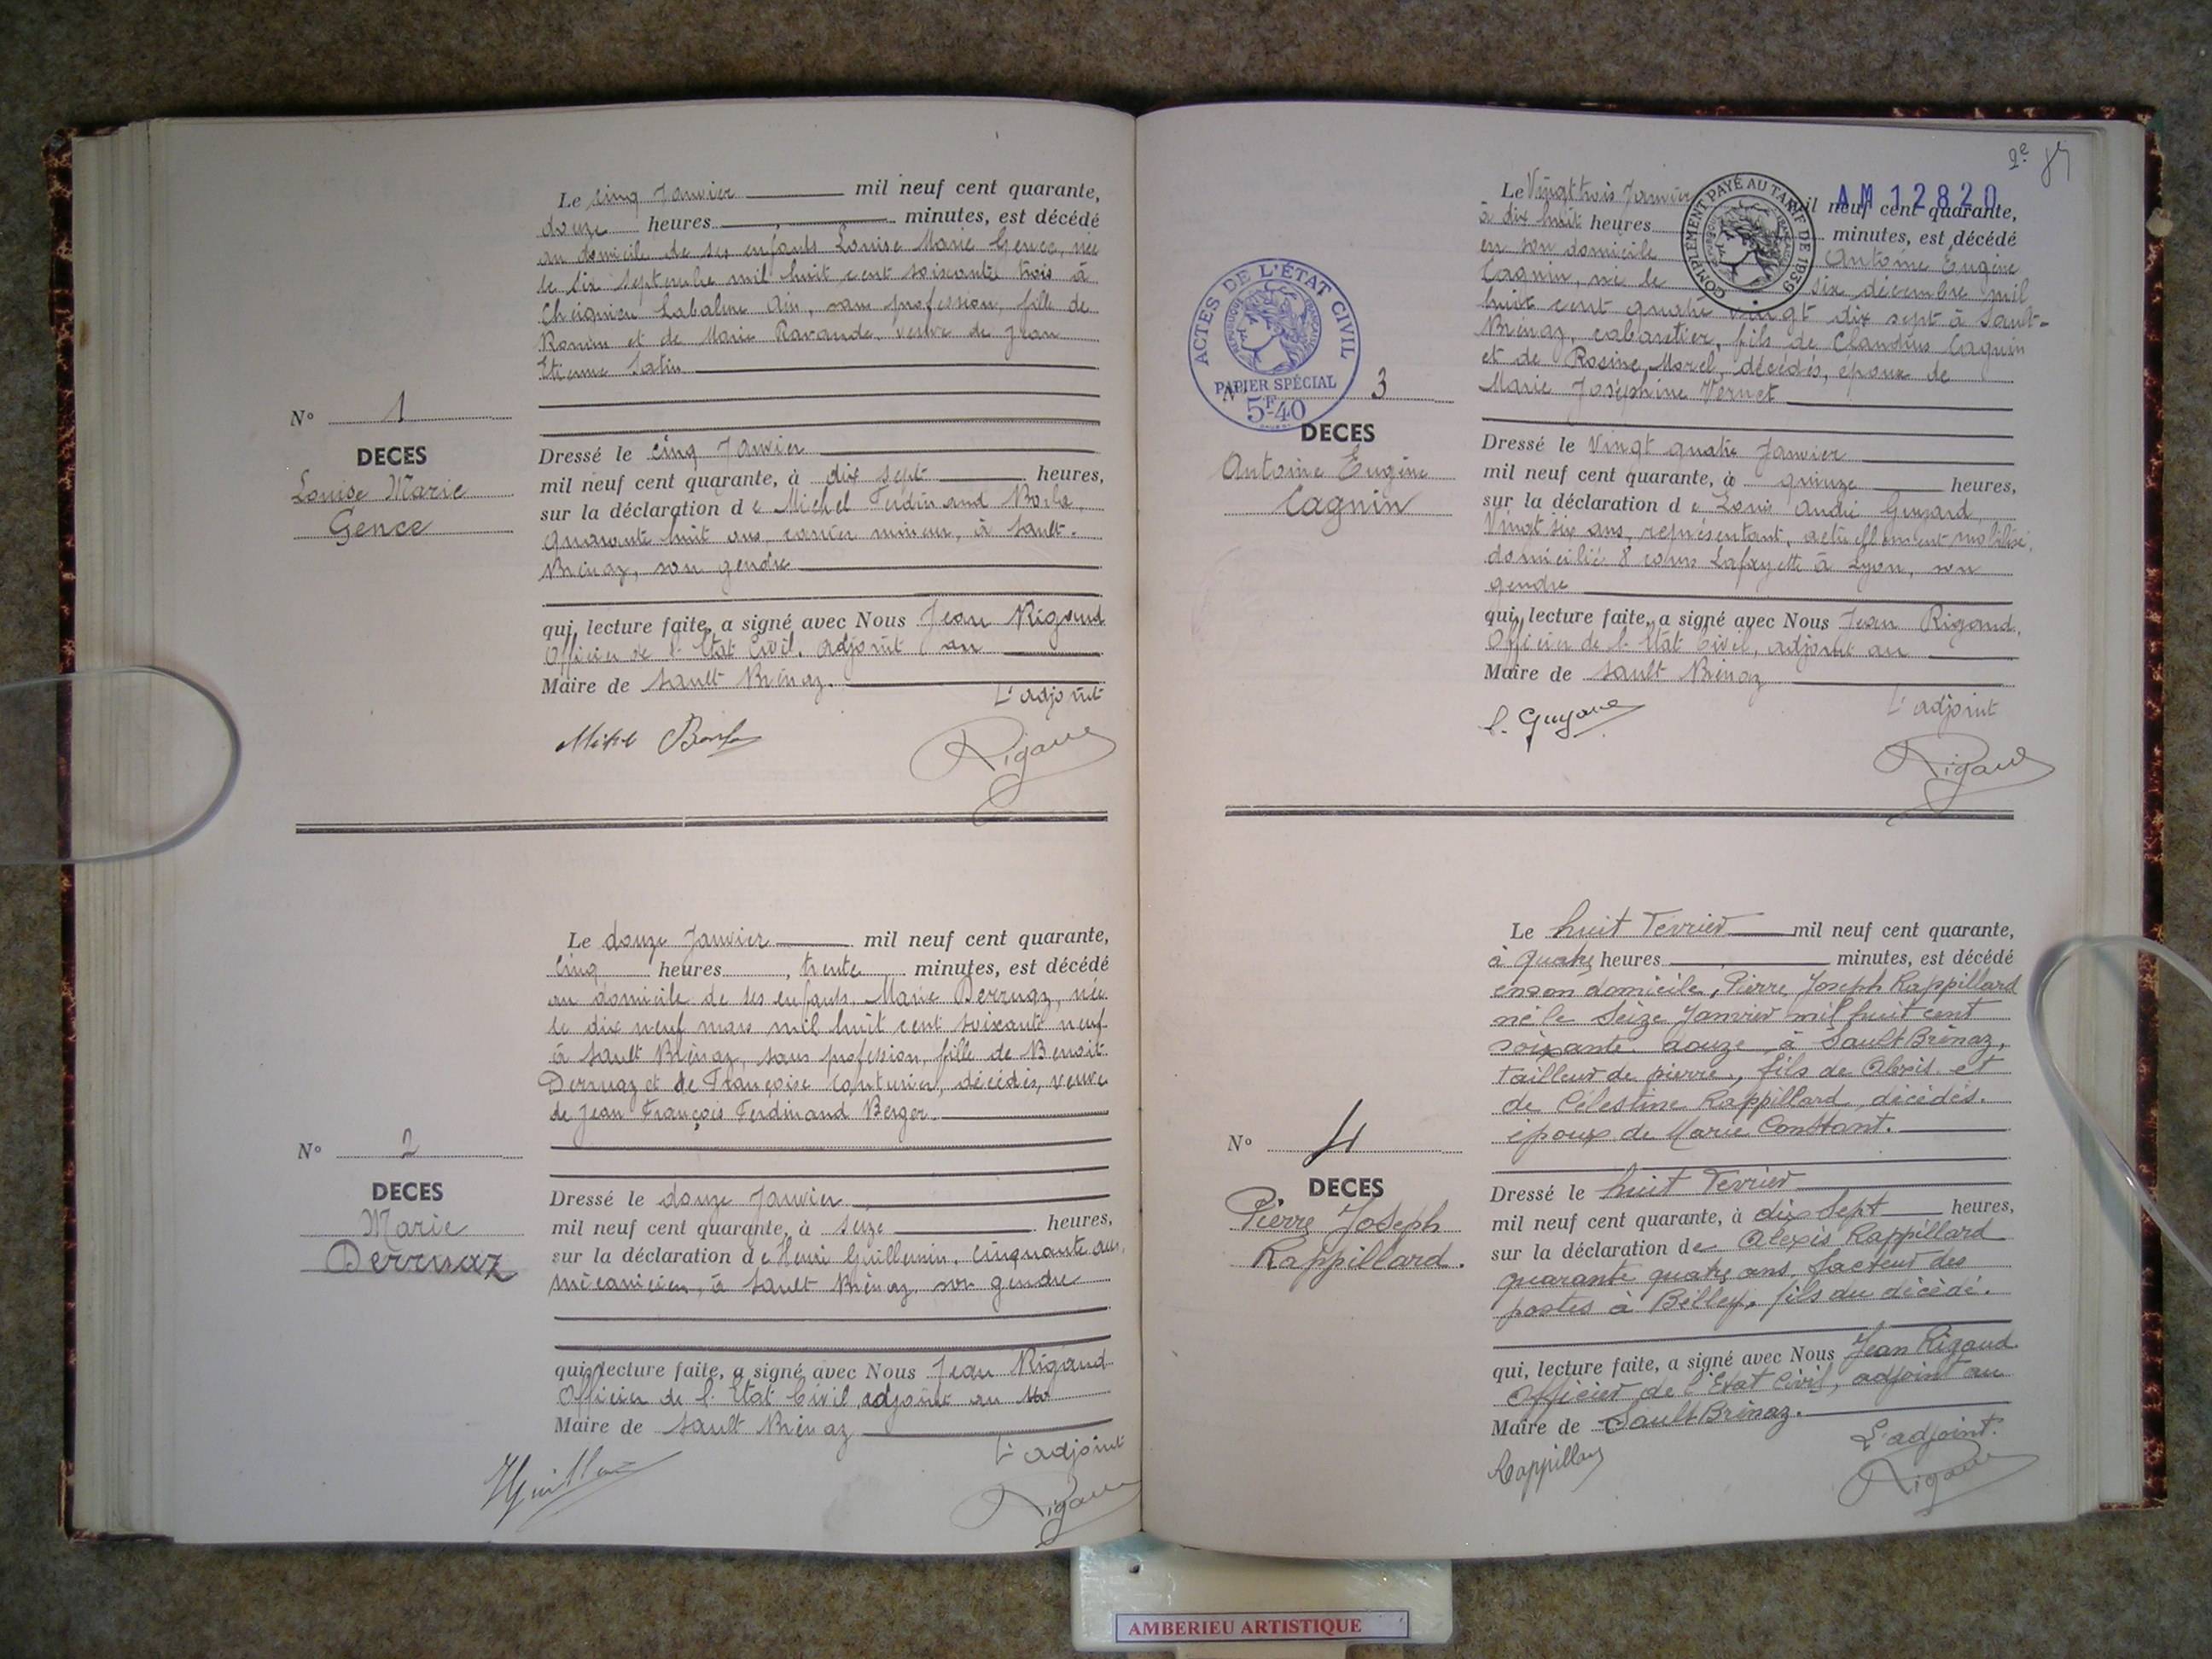 Le cinq Janvier mil neuf cent quarante,
douze heures minutes, est décédé
au domicile de ses enfants Louise Marie Gence, née
le six septembre mil huit cent soixante trois à
Cheignieu Labalme Ain, sans profession, fille de
Romin et de Marie Ravande, veuve de Jean
Etienne Satin
N° 1
DECES
Louise Marie
Gence
Dressé le cinq Janvier
mil neuf cent quarante, à dix sept heures,
sur la déclaration de Michel Ferdinand
quarante huit ans, carrier mineur, à Sault-
Brénaz, son gendre
qui, lecture faite, a signé avec Nous Jean Rigaud
Officier de l'Etat Civil, adjoint au
Maire de Sault Brénaz.
L'adjoint
Rigaud
Le douze Janvier mil neuf cent quarante,
cinq heures, trente minutes, est décédé
au domicile de ses enfants, Marie Derruaz, née
le dix neuf mars mil huit cent soixante neuf
à Sault Brénaz, sans profession, fille de Benoit
Derruaz et de Françoise Couturier, décédés, veuve
de Jean François Ferdinand Berger.
N° 2
DECES
Marie
Derruaz
Dressé le douze Janvier
mil neuf cent quarante, à seize heures,
sur la déclaration de Henri Guillemin, cinquante ans,
mécanicien, à Sault Brénaz, son gendre
qui, lecture faite, a signé avec Nous Jean Rigaud
Officier de l'Etat Civil, adjoint au
Maire de Sault Brénaz
L'adjoint
Rigaud
2e
AM 12820
COMPLÉMENT PAYÉ AU TARIF DE 1939
Le Vingt trois Janvier mil neuf cent quarante,
à dix huit heures minutes, est décédé
en son domicile Antoine Eugène
Cagnin, né le six décembre mil
huit cent quatre vingt dix sept à Sault-
Brénaz, cabaretier, fils de Claudius Cagnin
et de Rosine Morel, décédés, époux de
Marie Joséphine Vernet
ACTES DE L'ÉTAT CIVIL
RÉPUBLIQUE FRANÇAISE
PAPIER SPÉCIAL
5F40
N° 3
DECES
Antoine Eugène
Cagnin
Dressé le Vingt quatre Janvier
mil neuf cent quarante, à quinze heures,
sur la déclaration de Louis André Guyard,
Vingt six ans, représentant, actuellement mobilisé,
domicilié 8 cours Lafayette à Lyon, son
gendre
qui, lecture faite, a signé avec Nous Jean Rigaud,
Officier de l'Etat Civil, adjoint au
Maire de Sault Brénaz
L'adjoint
L. Guyard
Rigaud
Le huit Février mil neuf cent quarante,
à quatre heures minutes, est décédé
en son domicile, Pierre Joseph Rappillard
né le Seize Janvier mil huit cent
soixante douze à Sault Brénaz,
tailleur de pierre, fils de Alexis et
de Célestine Rappillard, décédés.
époux de Marie Constant.
N° 4
DECES
Pierre Joseph
Rappillard.
Dressé le huit Février
mil neuf cent quarante, à dix Sept heures,
sur la déclaration de Alexis Rappillard
quarante quatre ans, facteur des
postes à Belley, fils du décédé.
qui, lecture faite, a signé avec Nous Jean Rigaud
Officier de l'Etat Civil, adjoint au
Maire de Sault Brénaz.
L'adjoint.
Rappillard
Rigaud
AMBERIEU ARTISTIQUE